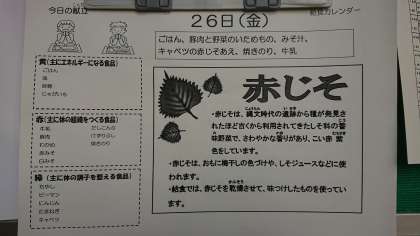 今日の献立
給食カレンダー
26日(金)
ごはん、豚肉と野菜のいためもの、みそ汁、
キャベツの赤じそあえ、焼きのり、牛乳
黄(主にエネルギーになる食品)
ごはん
油
砂糖
じゃがいも
赤(主に体の組織をつくる食品)
牛乳 だしこんぶ
豚肉 けずりぶし
わかめ 焼きのり
赤みそ
白みそ
緑(主に体の調子を整える食品)
もやし
ピーマン
にんじん
たまねぎ
キャベツ
赤じそ
・赤じそは、縄文時代の遺跡から種が発見さ
れたほど古くから利用されてきたしそ科の香
味野菜で、さわやかな香りがあり、こい赤紫
色をしています。
・赤じそは、おもに梅干しの色づけや、しそジュースなどに使
われます。
・給食では、赤じそを乾燥させて、味つけしたものを使ってい
ます。